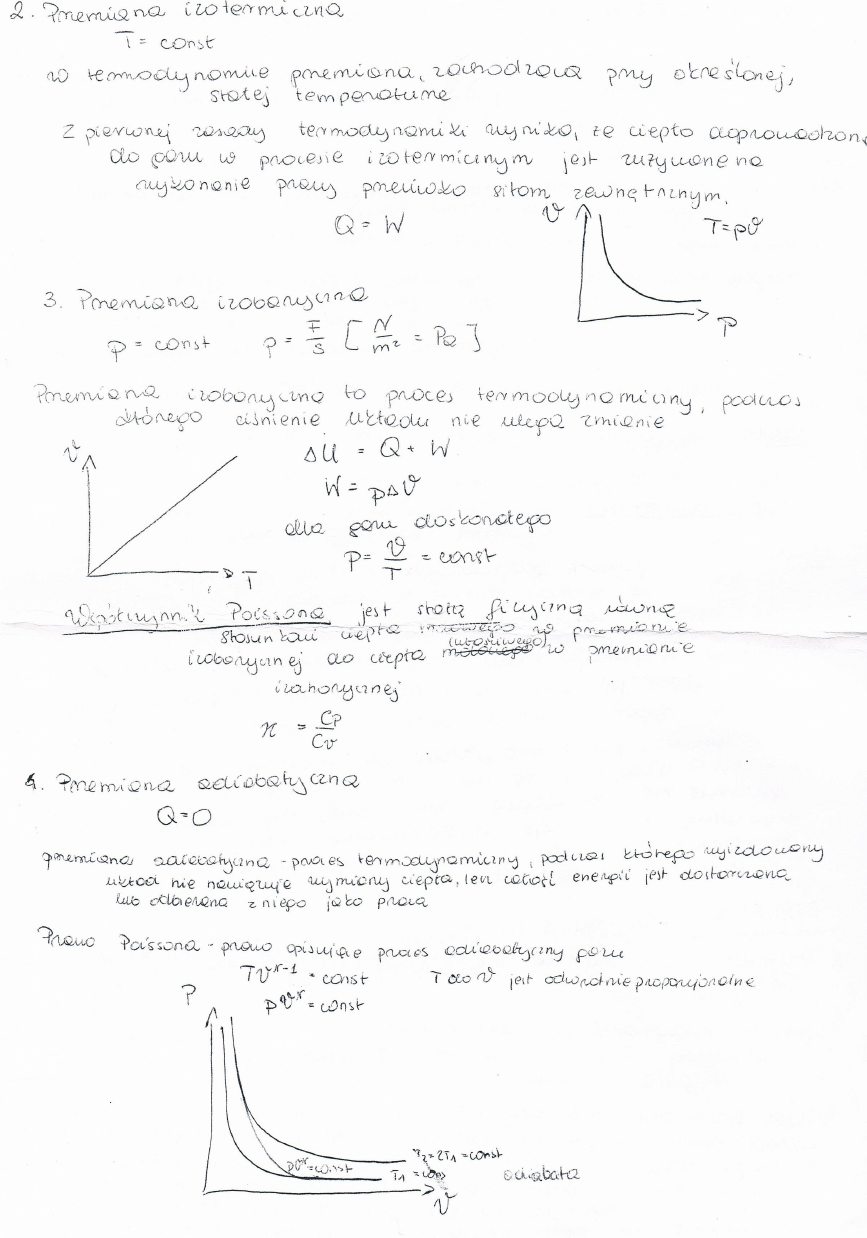 2. Przemiana izotermiczna
T = const
w termodynamice przemiana, zachodząca przy określonej,
stałej temperaturze
Z pierwszej zasady termodynamiki wynika, że ciepło doprowadzone
do gazu w procesie izotermicznym jest zużywane na
wykonanie pracy przeciwko siłom zewnętrznym.
Q = W
V
T = pV
P
3. Przemiana izobaryczna
p = const p = F/S [N/m² = Pa]
Przemiana izobaryczna to proces termodynamiczny, podczas
którego ciśnienie układu nie ulega zmianie
V
ΔU = Q + W
W = pΔV
dla gazu doskonałego
P = V/T = const
T
Współczynnik Poissona jest stałą fizyczną równą
stosunkowi ciepła w przemianie
(właściwego)
izobarycznej do ciepła molowego w przemianie
izohorycznej
ϰ = Cp/Cv
4. Przemiana adiabatyczna
Q=0
przemiana adiabatyczna - proces termodynamiczny, podczas którego wyizolowany
układ nie nawiązuje wymiany ciepła, lecz całość energii jest dostarczona
lub odbierana z niego jako praca
Prawo Poissona - prawo opisujące proces adiabatyczny gazu
TV^ϰ-1 = const T do V jest odwrotnie proporcjonalne
pV^ϰ = const
P
T2 = 2T1 = const
pV^ϰ = const
T1 = cons
adiabata
V